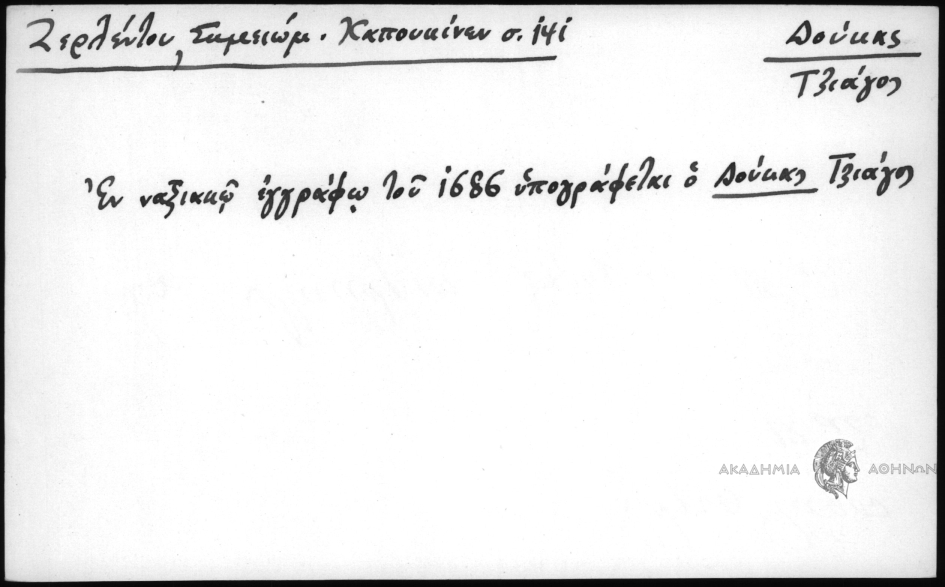 Ζερλέντου, Σημειώμ. Καπουκίνων σ. 141
Δούκας
Τζιάγος
Ἐν ναξιακῷ ἐγγράφῳ τοῦ 1686 ὑπογράφεται ὁ Δούκας Τζιάγος
ΑΚΑΔΗΜΙΑ ΑΘΗΝΩΝ